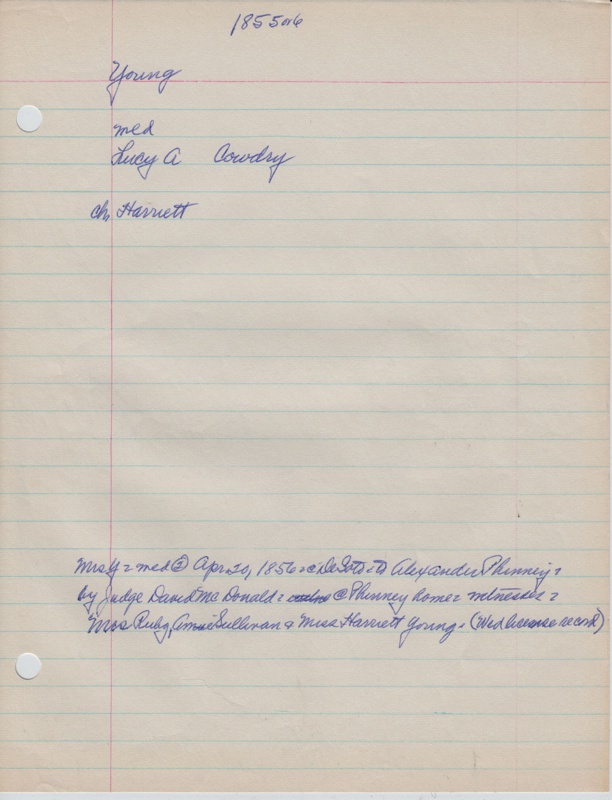 1855 or 6
Young
med
Lucy A Cowdry
ch, Harriett
Mrs Y = med ② Apr 20, 1856 = @ DeSoto = to Alexander Phinney =
by Judge David McDonald = @ Phinney home = witnesses =
Mrs Ruby, Sullivan & Miss Harriett Young = (Wed license record)